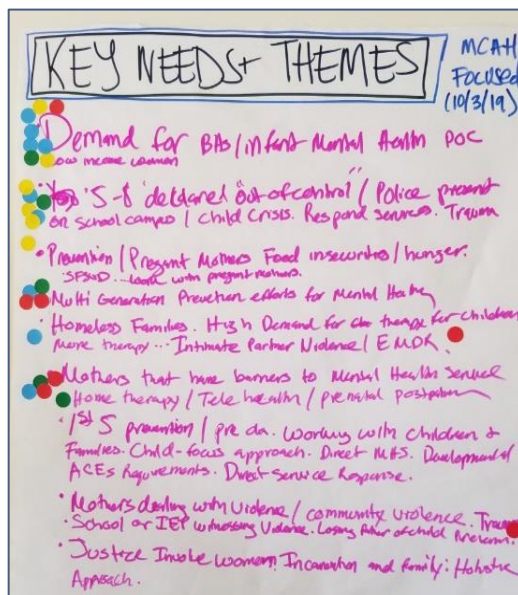 KEY NEEDS + THEMES
MCAH
FOCUSED
(10/3/19)
Demand for BAs/infant Mental Health POC
low income women
5-8 "declared out of control" / Police present
on school campus / Child Crisis. Respond services. Trauma
• Prevention / Pregnant Mothers Food insecurities / hunger.
SFSUD... work with pregnant mothers.
Multi Generation Prevention efforts for Mental Health
• Homeless Families. High Demand for therapy for children
more therapy... Intimate Partner Violence / EMDR.
• Mothers that have barriers to Mental Health Service
Home therapy / Tele health / prenatal postpartum
• 1st 5 prevention / pre da. Working with children &
Families. Child-focus approach. Direct MHS. Development of
ACEs Requirements. Direct Service Response.
• Mothers dealing with violence / community violence. Trauma
• School or IEP witnessing Violence. Losing father of child
• Justice Involve women: Incarceration and family: Holistic
Approach.